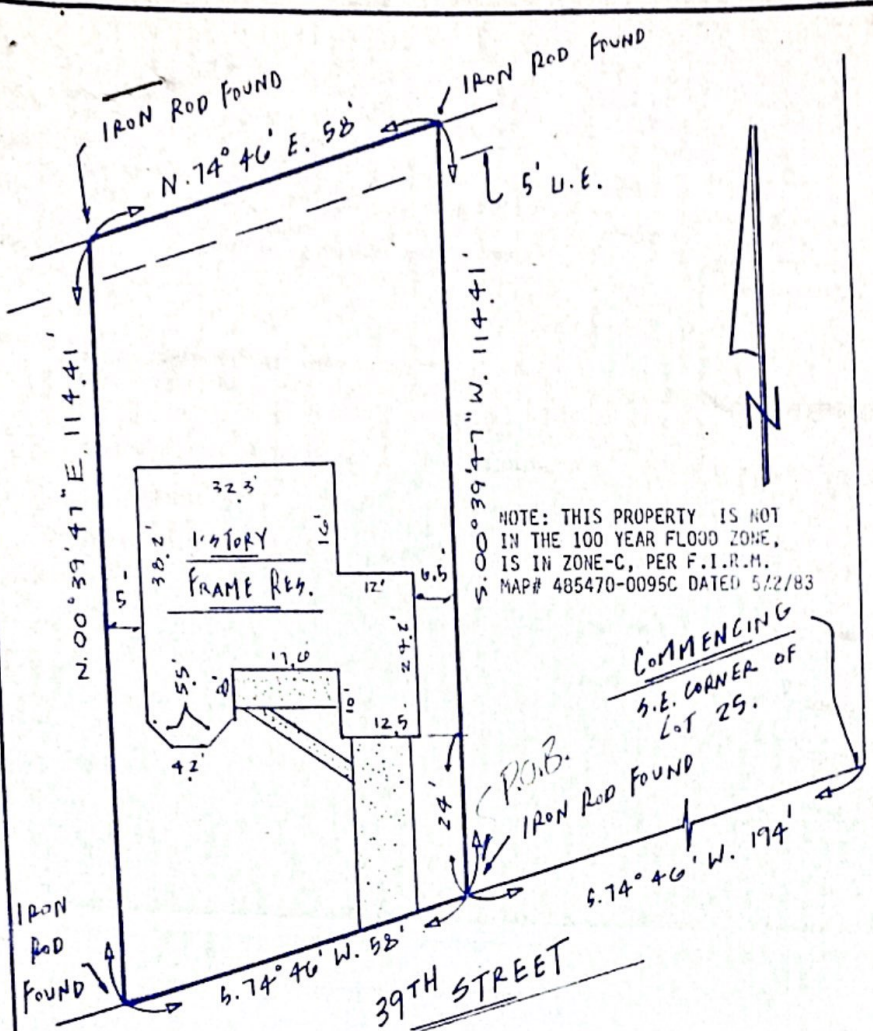 IRON ROD FOUND
IRON ROD FOUND
N. 74° 46' E. 58'
5' U.E.
N. 00° 39' 47" E. 114.41'
S. 00° 39' 47" W. 114.41'
N
32.3'
38.2'
1-STORY
FRAME RES.
16'
12'
6.5'
5'
24.2'
NOTE: THIS PROPERTY IS NOT
IN THE 100 YEAR FLOOD ZONE,
IS IN ZONE-C, PER F.I.R.M.
MAP# 485470-0095C DATED 5/2/83
COMMENCING
S.E. CORNER OF
LOT 25.
17.6'
8'
10'
5.5'
4.2'
12.5'
24'
P.O.B.
IRON ROD FOUND
S. 74° 46' W. 194'
IRON
ROD
FOUND
S. 74° 46' W. 58'
39TH STREET